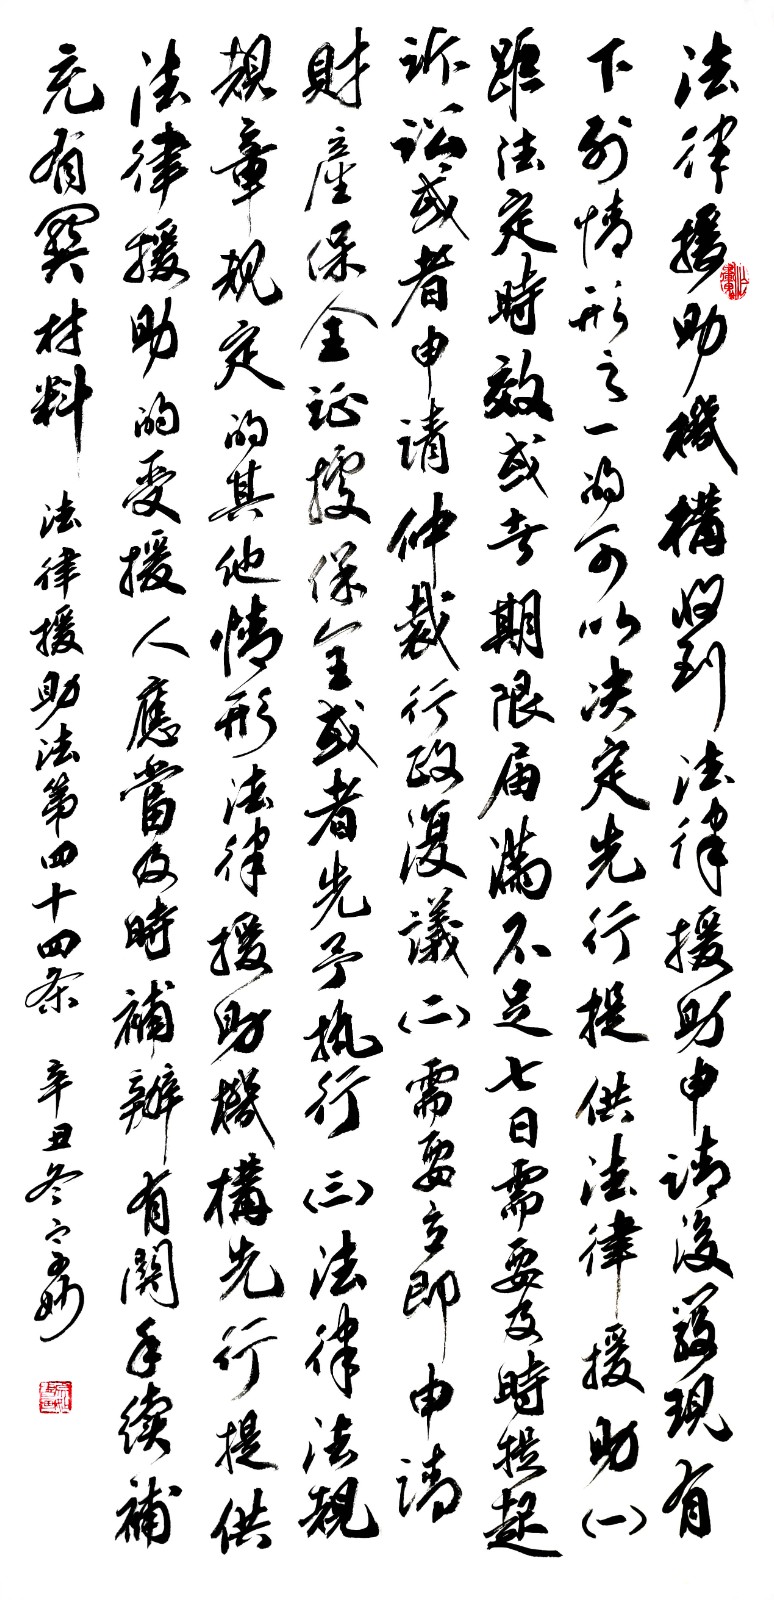 法律援助機構收到法律援助申請後發現有
下列情形之一的可以决定先行提供法律援助(一)
距法定時效或者期限届滿不足七日需要及時提起
訴訟或者申請仲裁行政復議(二)需要立即申請
財產保全証據保全或者先予執行(三)法律法規
規章規定的其他情形法律援助機構先行提供
法律援助的受援人應當及時補辦有関手續補
充有関材料 法律援助法第四十四条 辛丑冬